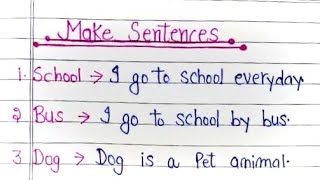 Make Sentences
1. School → I go to school everyday.
2 Bus → I go to school by bus.
3. Dog → Dog is a Pet animal.